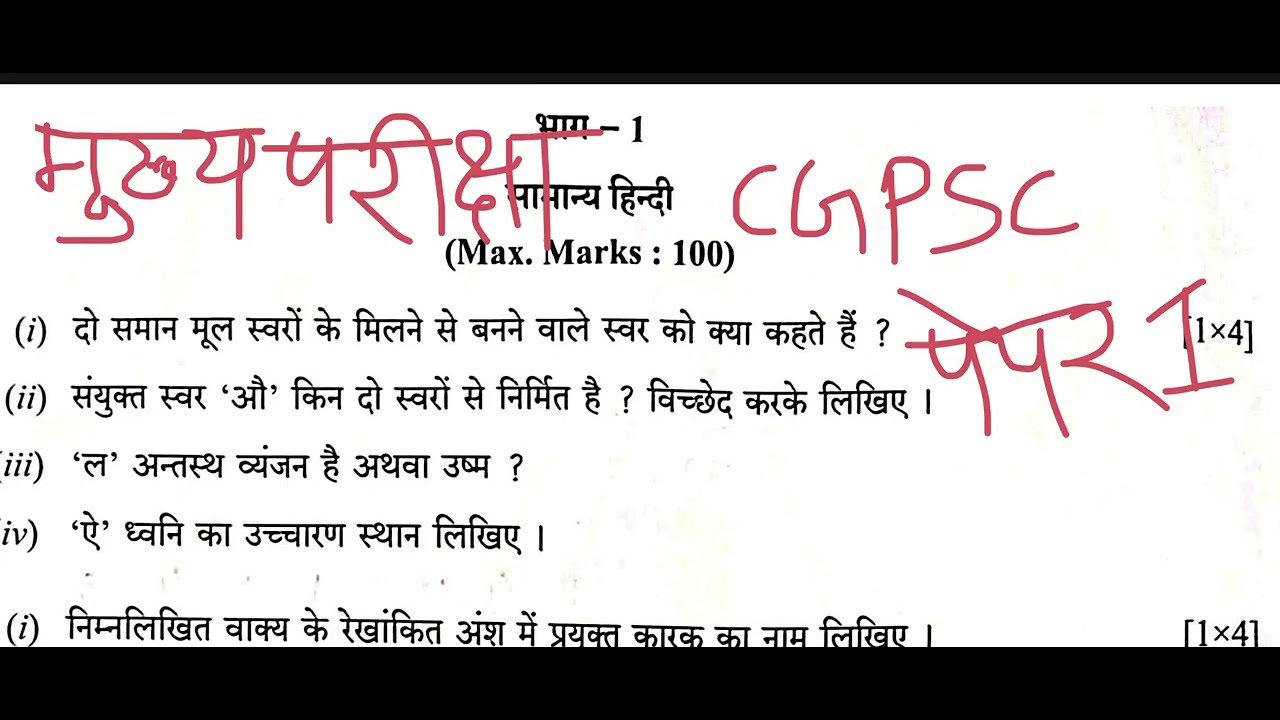 भाग – 1
मुख्य परीक्षा
सामान्य हिन्दी
CGPSC
(Max. Marks : 100)
पेपर 1
(i) दो समान मूल स्वरों के मिलने से बनने वाले स्वर को क्या कहते हैं ? [1×4]
(ii) संयुक्त स्वर ‘औ’ किन दो स्वरों से निर्मित है ? विच्छेद करके लिखिए ।
(iii) ‘ल’ अन्तस्थ व्यंजन है अथवा उष्म ?
(iv) ‘ऐ’ ध्वनि का उच्चारण स्थान लिखिए ।
(i) निम्नलिखित वाक्य के रेखांकित अंश में प्रयुक्त कारक का नाम लिखिए । [1×4]